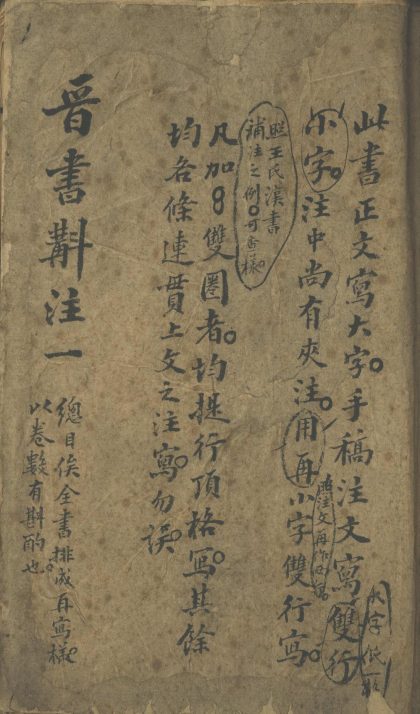 此書正文寫大字。手稿注文寫雙行
小字。注中尚有夾注。用再小字雙行寫。
照王氏漢書
補注之例。可查樣
凡加8雙圈者。均提行頂格寫。其餘
均各條連貫上文之注寫。勿誤。
晉書斠注一
總目俟全書排成再寫樣。
以卷數有斟酌也。